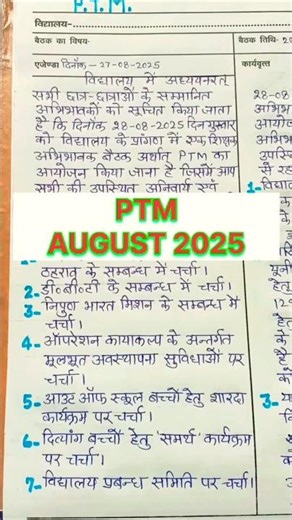 P.T.M.
विद्यालय-
बैठक का विषय-
बैठक तिथि- 2
एजेण्डा दिनाँक - 27-08-2025
कार्यवृत्त
विद्यालय में अध्ययनरत्
सभी छात्र-छात्राओं के सम्मानित
अभिभावकों को सूचित किया जाता
है कि दिनाँक 28-08-2025 दिन गुरुवार
को विद्यालय के प्रांगण में एक शिक्षक
अभिभावक बैठक अर्थात् PTM का
आयोजन किया जाना है जिसमें आप
सभी की उपस्थिति अनिवार्य एवं
PTM
AUGUST 2025
ठहराव के सम्बन्ध में चर्चा।
2- डी०बी०टी के सम्बन्ध में चर्चा।
3- निपुण भारत मिशन के सम्बन्ध में
चर्चा।
4- ऑपरेशन कायाकल्प के अन्तर्गत
मूलभूत अवस्थापना सुविधाओं पर
चर्चा।
5- आउट ऑफ स्कूल बच्चों हेतु शारदा
कार्यक्रम पर चर्चा।
6- दिव्यांग बच्चों हेतु 'समर्थ' कार्यक्रम
पर चर्चा।
7- विद्यालय प्रबन्ध समिति पर चर्चा।
28-08
अभिभ
आयोज
अभिभा
उपस्थि
से रह
1- विद्या